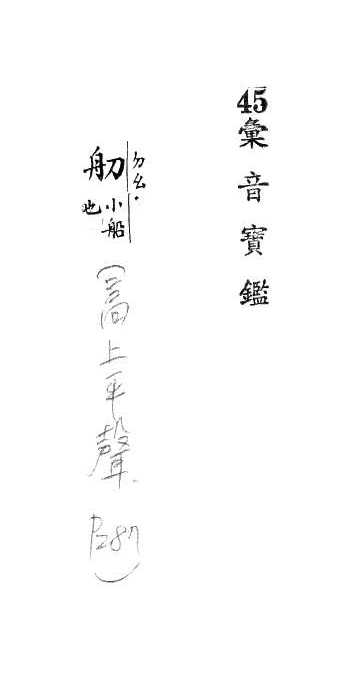 45彙音寶鑑
舠 ㄉㄠ· 小船也
(高上平聲 P287)